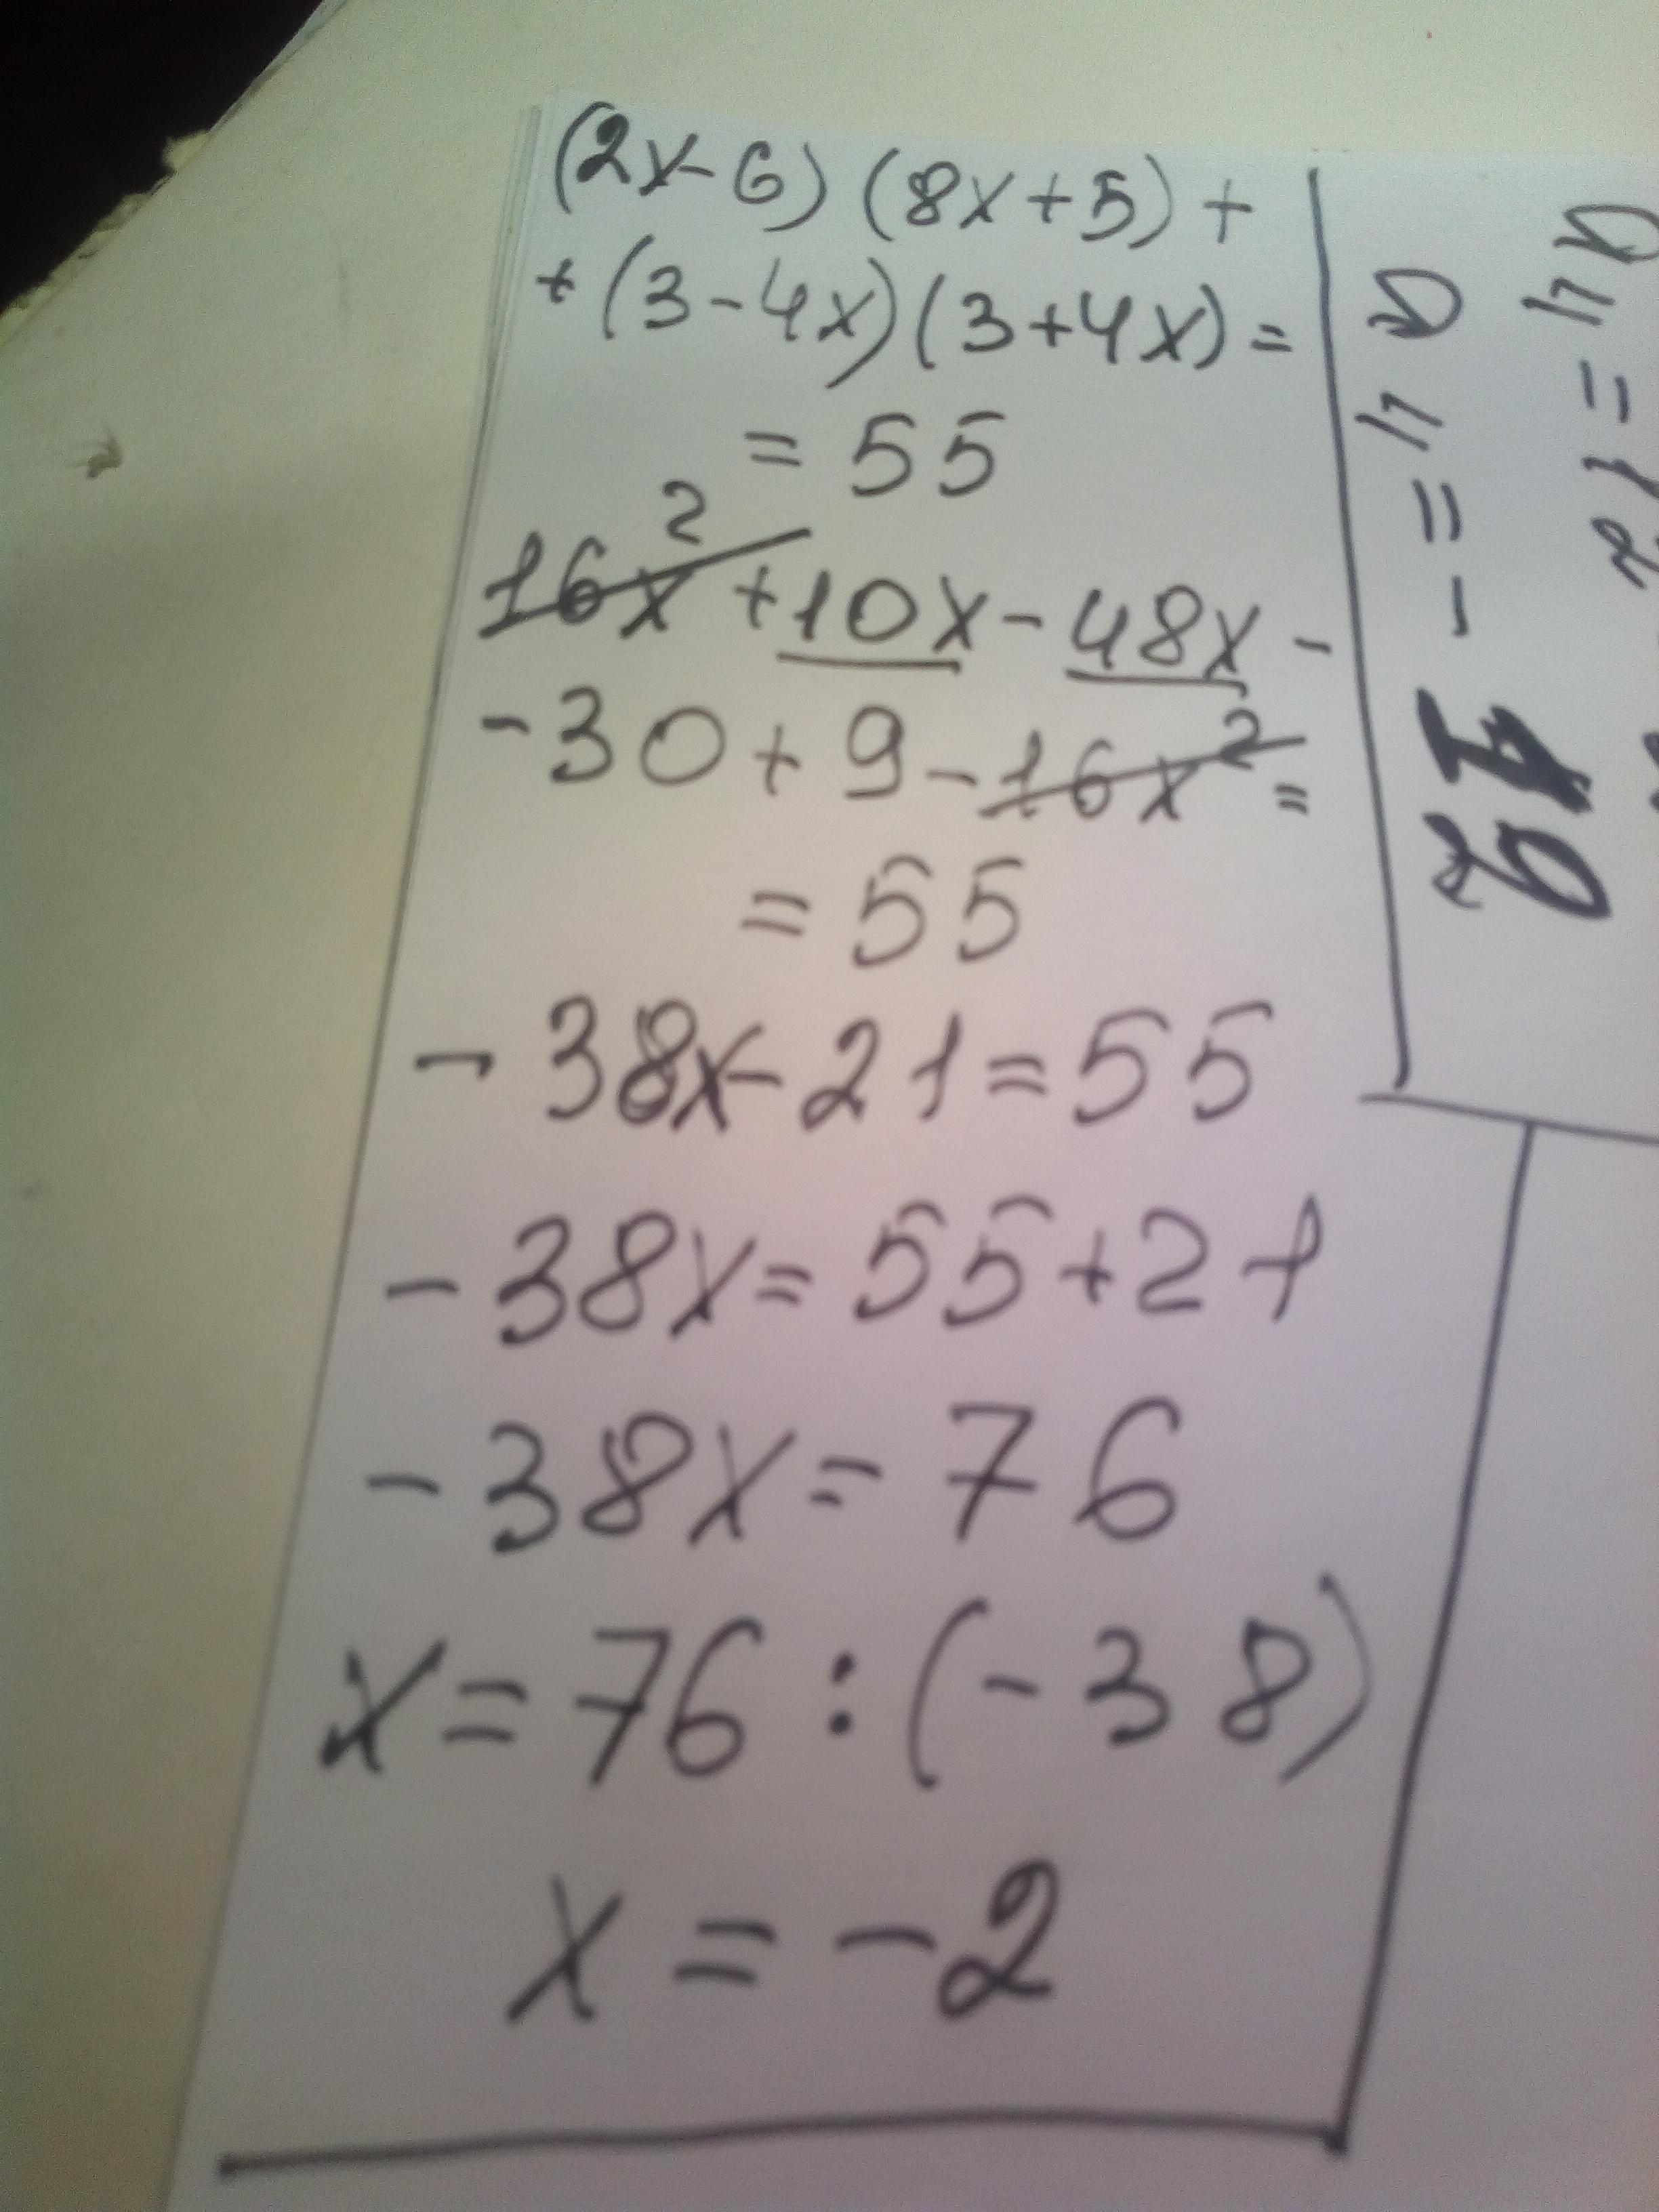 (2x-6)(8x+5)+
+(3-4x)(3+4x)=
=55
16x²+10x-48x-
-30+9-16x²=
=55
-38x-21=55
-38x=55+21
-38x=76
x=76:(-38)
x=-2